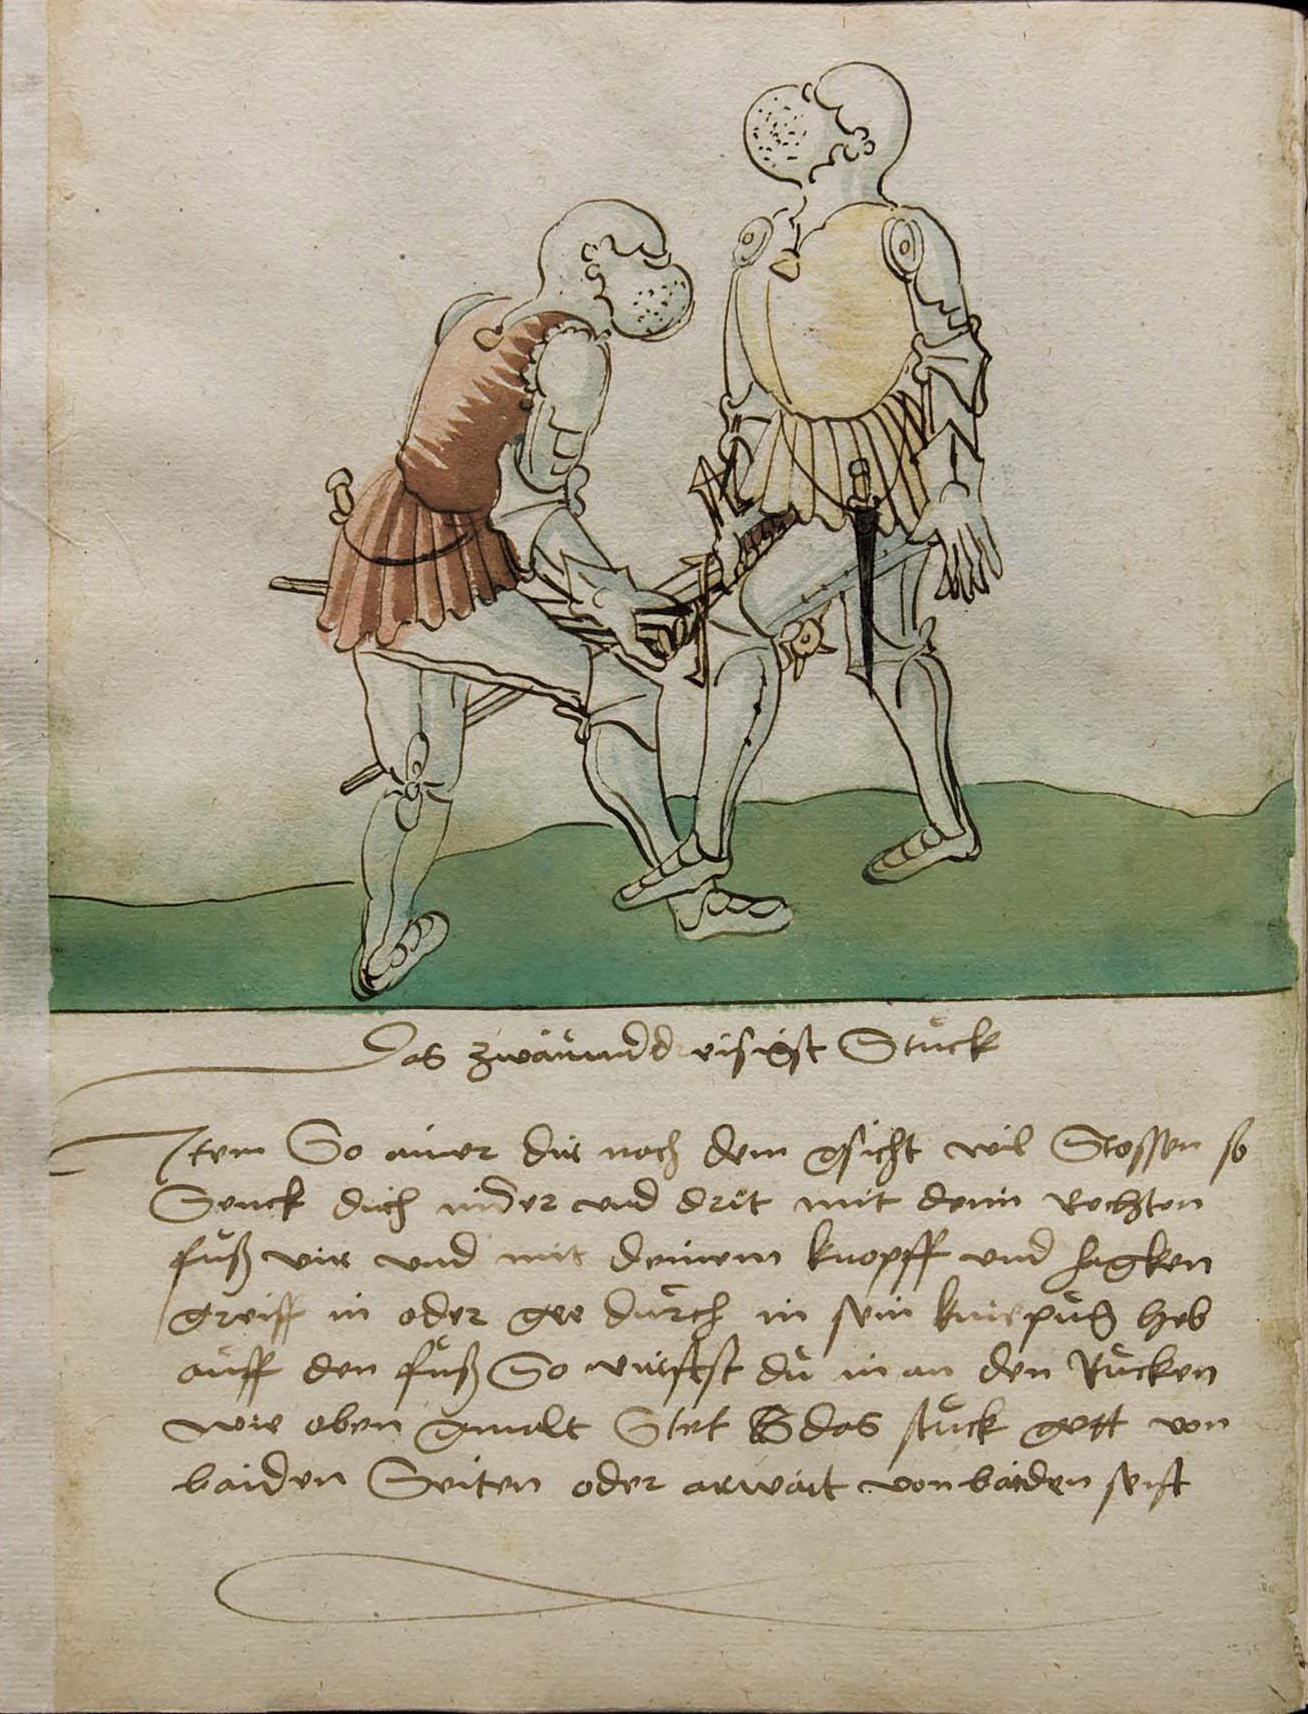 Das zwaiunddreisigist Stuck
Item So ainer dir nach dem gsicht wil Stossen so
Senck dich nider und drit mit dem Rechten
fuß vir und mit deinem knopff und hagken
greiff in oder gee durch in sein kniepug heb
auff den fuß So wirffst du in an den Rucken
wie oben gmalt Stet das stuck gett von
baiden Seiten oder arwait von baiden seist